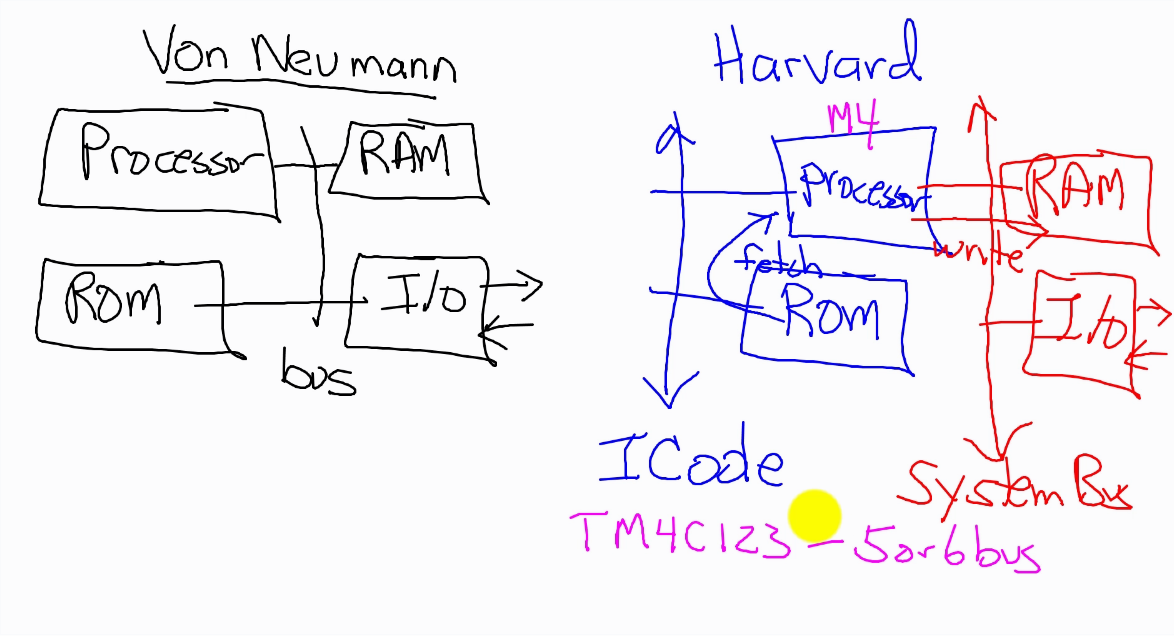 Von Neumann
Processor
RAM
ROM
I/O
bus
Harvard
M4
Processor
RAM
write
fetch
ROM
I/O
ICode
System Bus
TM4C123 - 5 or 6 bus